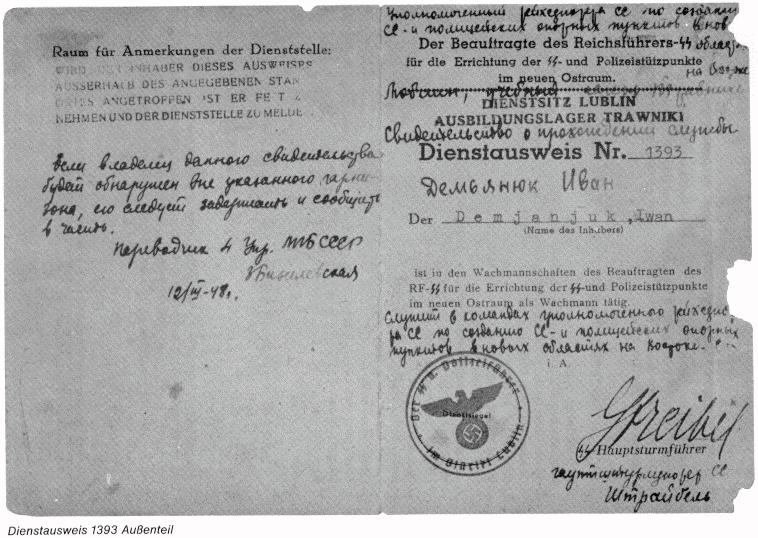 Raum für Anmerkungen der Dienststelle:
WIRD DER INHABER DIESES AUSWEISES
AUSSERHALB DES ANGEGEBENEN STAN
ORTES ANGETROFFEN IST ER FE T Z
NEHMEN UND DER DIENSTSTELLE ZU MELDE
Если владелец данного свидетельства
будет обнаружен вне указанного гарни-
зона, его следует задержать и сообщить
в часть.
Переводчик 4 Упр. МГБ СССР
12/III-48г.
уполномоченный рейхсфюрера СС по созданию
СС - и полицейских опорных пунктов в нов
Der Beauftragte des Reichsführers-SS
областях
für die Errichtung der SS- und Polizeistützpunkte
im neuen Ostraum.
на Востоке
Люблин, учебный
DIENSTSITZ LUBLIN
AUSBILDUNGSLAGER TRAWNIKI
Свидетельство о прохождении службы
Dienstausweis Nr. 1393
Демьянюк Иван
Der Demjanjuk, Iwan
(Name des Inhabers)
ist in den Wachmannschaften des Beauftragten des
RF-SS für die Errichtung der SS-und Polizeistützpunkte
im neuen Ostraum als Wachmann tätig.
служит в командах уполномоченного рейхсфюре-
ра СС по созданию СС - и полицейских опорных
пунктов в новых областях на востоке.
i. A.
Der SS u. Polizeiführer
Dienstsiegel
im Distrikt Lublin
Streibel
SS Hauptsturmführer
гауптштурмфюрер СС
Штрайбель
Dienstausweis 1393 Außenteil